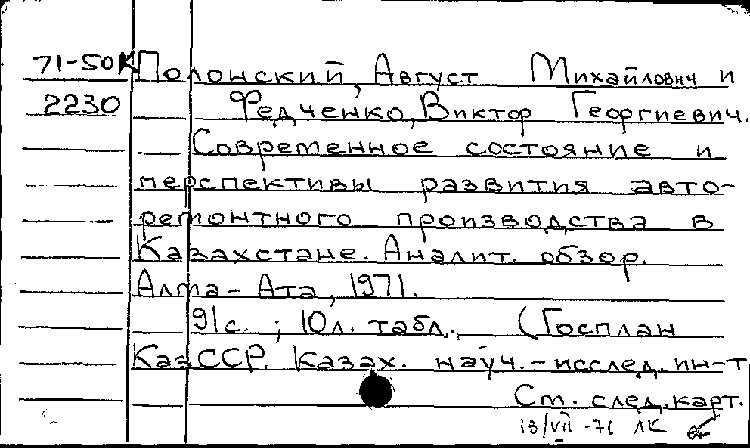 71-50К Полонский, Август Михайлович и
2230 Федченко, Виктор Георгиевич.
Современное состояние и
перспективы развития авто-
ремонтного производства в
Казахстане. Аналит. обзор.
Алма-Ата, 1971.
91 с.; 10 л. табл. (Госплан
КазССР. Казах. науч.-исслед. ин-т
См. след. карт.
13/VII-71 ЛК